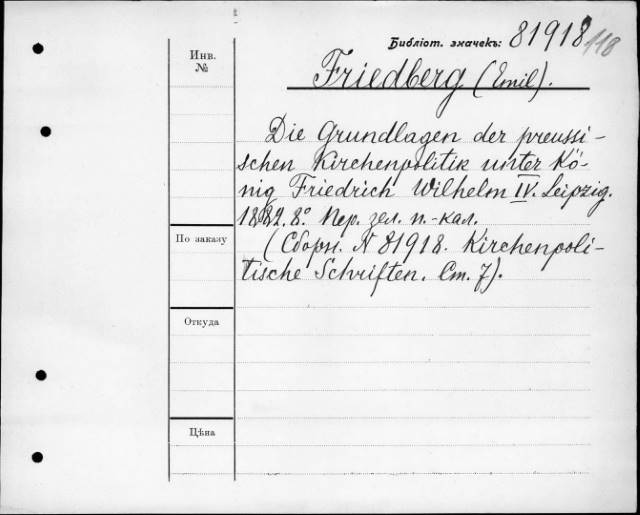 Библіот. значекъ: 81918
118
Инв.
№
Friedberg (Emil).
Die Grundlagen der preussi-
schen Kirchenpolitik unter Kö-
nig Friedrich Wilhelm IV. Leipzig.
1882. 8º. Пер. зел. п.-кал.
По заказу
(Сборн. N 81918. Kirchenpoli-
tische Schriften. Ст. 7).
Откуда
Цѣна